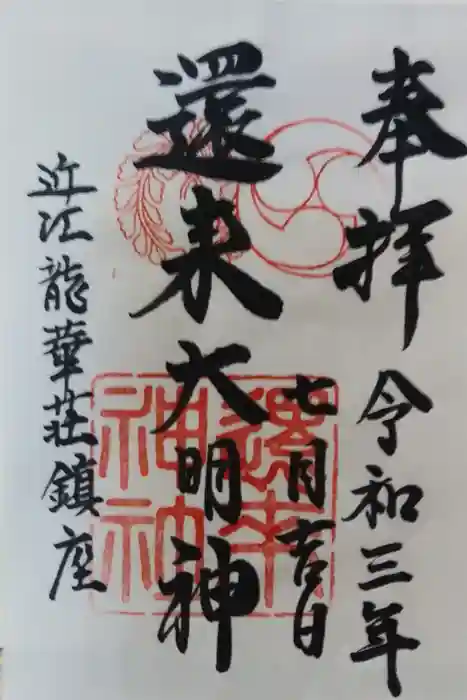 奉拝
令和三年
七月吉日
還来大明神
近江龍華荘鎮座
還来
神社